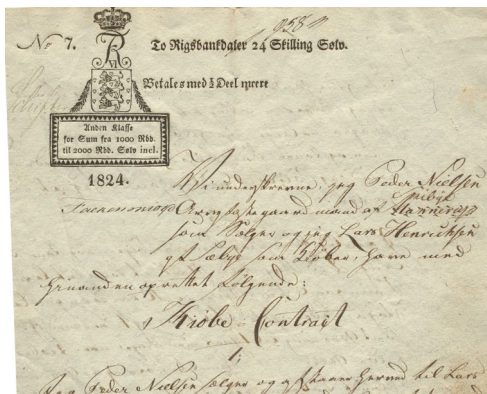 No 7.
To Rigsbankdaler 24 Skilling Sølv.
VI
Betales med ½ Deel meere
Anden Klasse
for Sum fra 1000 Rbd.
til 2000 Rbd. Sølv incl.
1824.
Vi underskrevne, jeg Peder Nielsen
Arvefæstegaardmand af
som Sælger og jeg Lars Henrichsen
af Sæbye som Kiøber, have med
hinanden oprettet følgende:
Kiøbe-Contract
1,
Jeg Peder Nielsen sælger og afstaaer herved til Lars